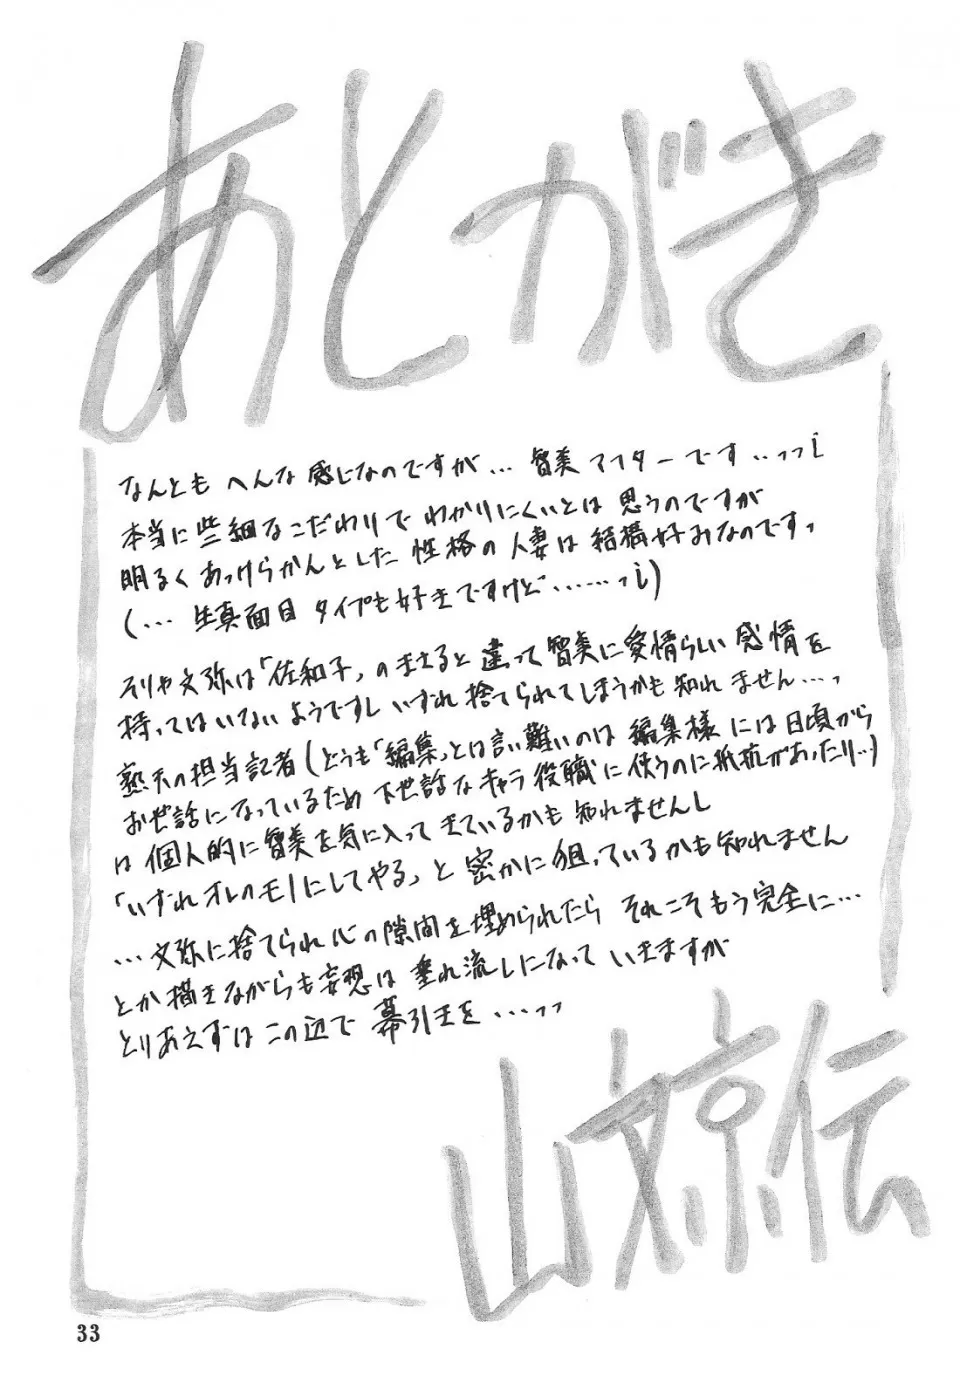 あとがき
なんとも へんな 感じなのですが… 智美 アフターです‥っっ;
本当に些細なこだわりで わかりにくいとは 思うのですが
明るく あっけらかんとした 性格の 人妻は 結構好みなのです、
(… 生真面目 タイプも好きですけど……っ;)
文弥は「佐和子」の まさると 違って 智美に愛情らしい 感情を
持ってはいないようですし いずれ 捨てられてしまうかも 知れません…、
担当記者(どうも「編集」とは言い難いのは 編集様 には 日頃から
お世話になっているため 下世話な キャラ 役職に 使うのに抵抗があったり…)
は 個人的に智美を気に入って きているかも 知れませんし
「いずれオレのモノにしてやる」と 密かに狙っているかも知れません
… 文弥に捨てられ 心の隙間を埋められたら それこそもう完全に…
とか 描きながらも妄想は 垂れ流しになって いきますが
とりあえずは この辺で 幕引きを …っっ
山文京伝
33